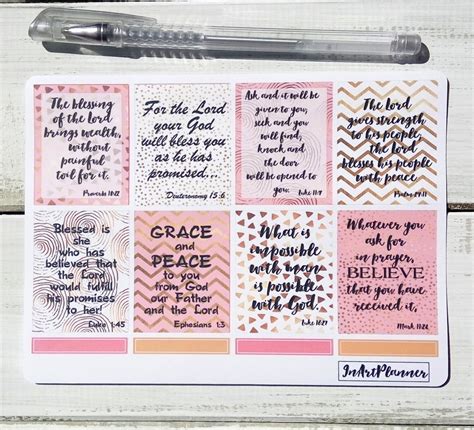 The blessing
of the Lord
brings wealth,
without
painful
toil for it.
Proverbs 10:22
For the Lord
your God
will bless you
as he has
promised...
Deuteronomy 15:6
Ask and it will be
given to you,
seek and you
will find,
knock and
the door
will be opened to
you.
Luke 11:9
The Lord
gives strength
to his people,
the Lord
blesses his people
with peace.
Psalm 29:11
Blessed is
she
who has
believed that
the Lord
would fulfill
his promises
to her!
Luke 1:45
GRACE
and
PEACE
to you
from God
our Father
and the Lord
Ephesians 1:3
What is
impossible
with man
is possible
with God.
Luke 18:27
Whatever you
ask for
in prayer,
BELIEVE
that you have
received it,
Mark 11:24
InArtPlanner